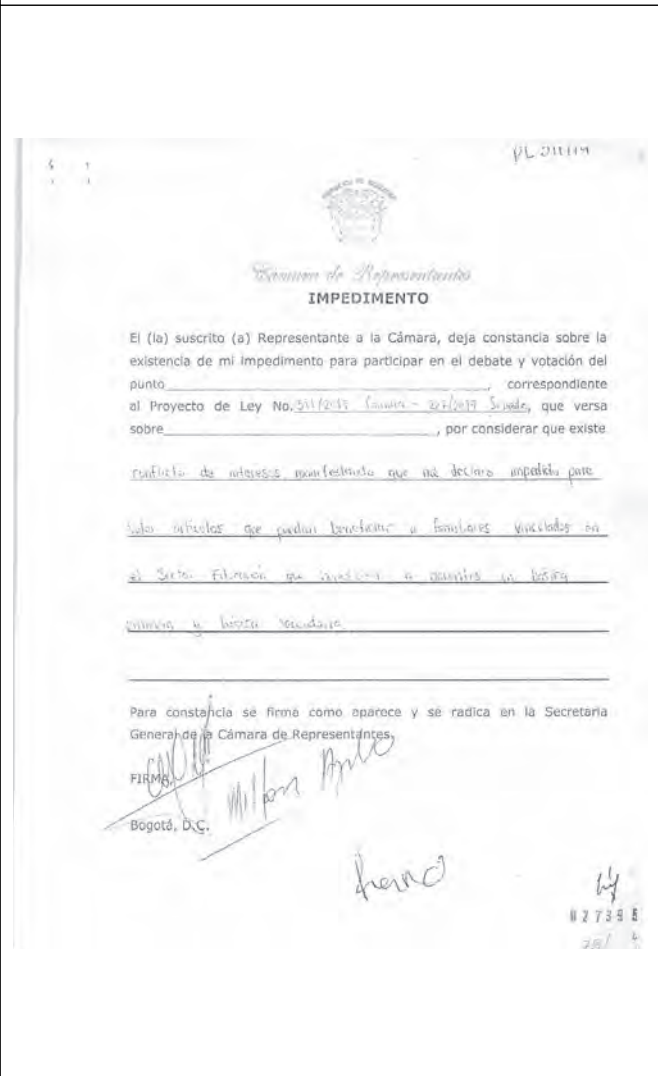 Cámara de Representantes
IMPEDIMENTO
El (la) suscrito (a) Representante a la Cámara, deja constancia sobre la
existencia de mi impedimento para participar en el debate y votación del
punto , correspondiente
al Proyecto de Ley No. Senado, que versa
sobre , por considerar que existe
conflicto de intereses manifestando que me declaro impedido para
artículos que puedan beneficiar a familiares vinculados en
el Sector Educación que a docentes en básica
primaria y básica secundaria
Para constancia se firma como aparece y se radica en la Secretaria
General de la Cámara de Representantes.
FIRMA
Milton
Bogotá, D.C.